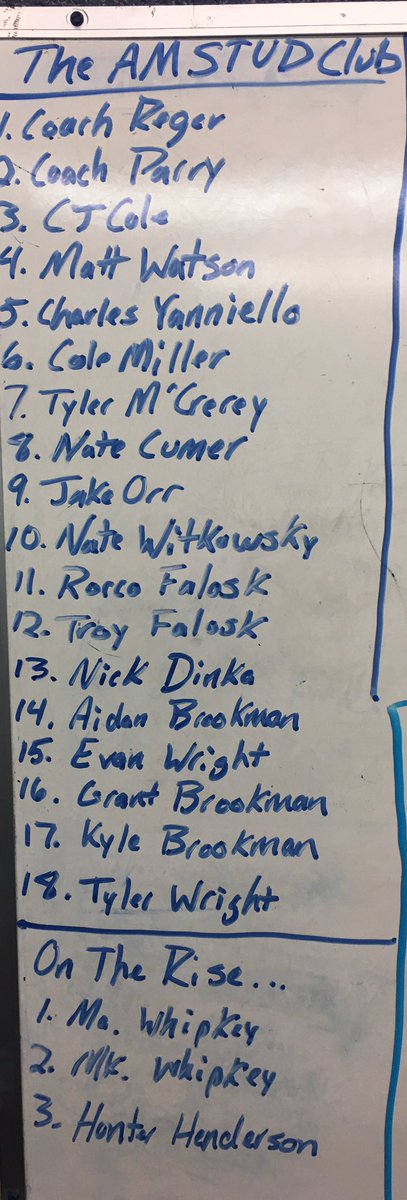 The AM STUD Club
1. Coach Reger
2. Coach Parry
3. CJ Cole
4. Matt Watson
5. Charles Yanniello
6. Cole Miller
7. Tyler M'Crerey
8. Nate Cumer
9. Jake Orr
10. Nate Witkowsky
11. Rocco Falosk
12. Troy Falosk
13. Nick Dinka
14. Aidan Brookman
15. Evan Wright
16. Grant Brookman
17. Kyle Brookman
18. Tyler Wright
On The Rise...
1. Ma. Whipkey
2. Mk. Whipkey
3. Hunter Henderson